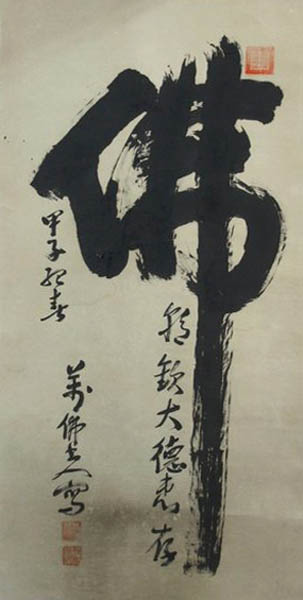 佛
欽大德惠存
甲子初春
萬佛人寫